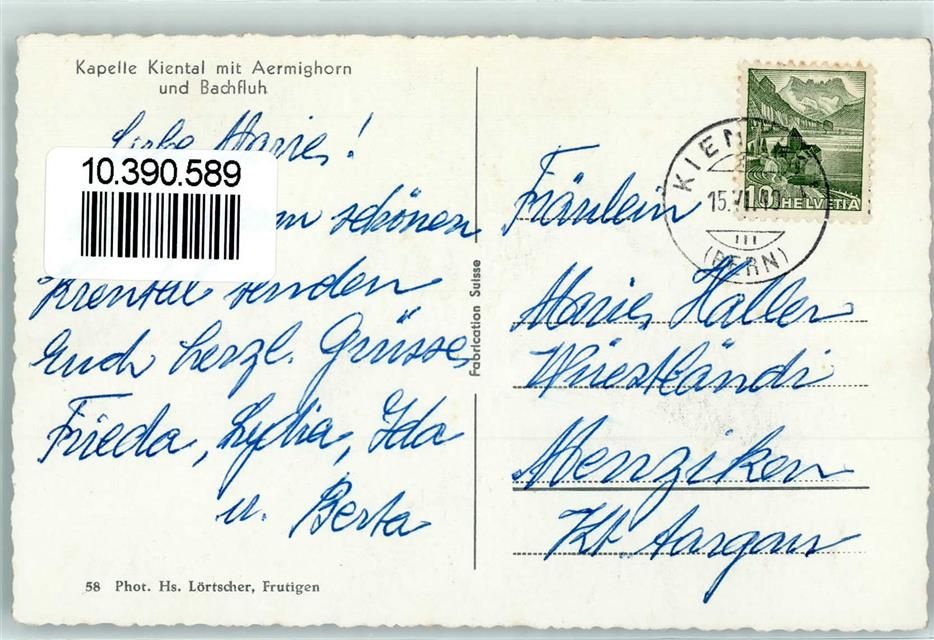 Kapelle Kiental mit Aermighorn
und Bachfluh
Liebe Marie!
10.390.589
schönen
Kiental senden
Euch herzl. Grüsse
Frieda, Lydia, Ida
u. Berta
58 Phot. Hs. Lörtscher, Frutigen
Fabrication Suisse
10 HELVETIA
(BERN)
Fräulein
Marie Haller
Menziken
Kt. Aargau